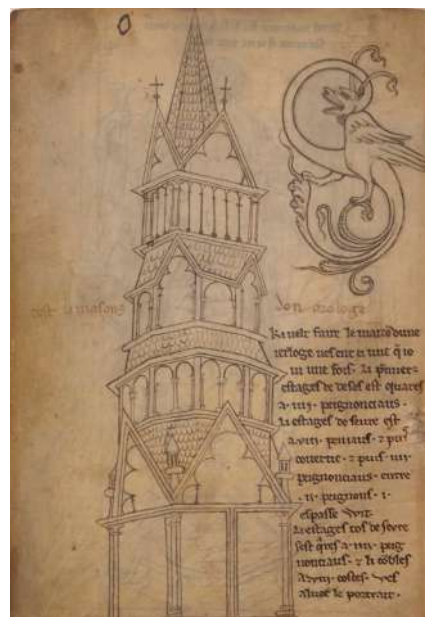 cest li masons don orologe
Ki velt faire le maizo dune
ierloge ves ent ci une q̄ io
vi une fois. li prumiers
estages de desos est quarés
a .iiii. peignonciaus.
li estages deseure est
a .viii. peniaus. ⁊ puis
covertic. ⁊ puis .iiii.
peignonciaus. entre
.ii. peignons .i.
espasse wit.
li estages tos deseure
sest q̄res a .iiii. peig
nonciaus. ⁊ li cōbles
a .viii. costes. ves
aluec le portrait.